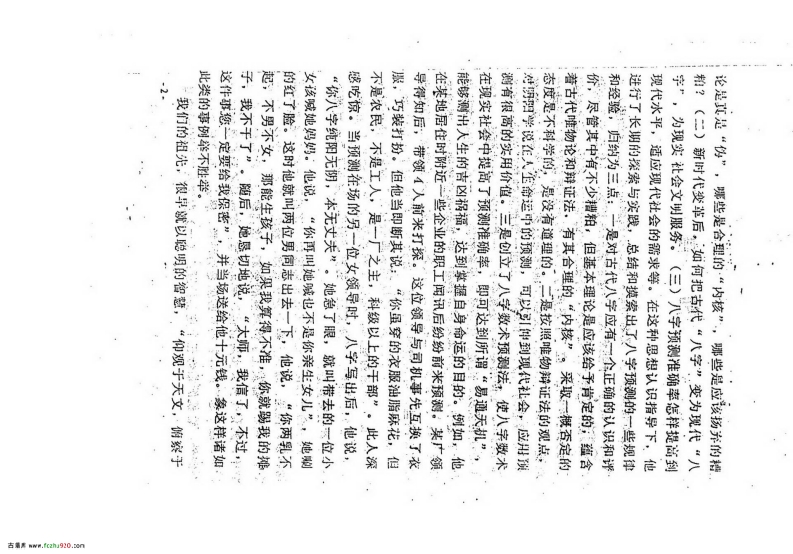 论是真是“伪”，哪些是合理的“内核”，哪些是应该扬弃的糟
粕？（二）新时代变革后。如何把古代“八字”变为现代“八
字”，为现实社会文明服务。（三）八字预测准确率怎样提高到
现代水平，适应现代社会的需求等。在这种思想认识指导下，他
进行了长期的探索与实践，总结和摸索出了八字预测的一些规律
和经验，归纳为三点：一是对古代八字应有一个正确的认识和评
价，尽管其中有不少糟粕，但基本理论是应该给予肯定的；蕴含
着古代唯物论和辩证法，有其合理的“内核”。采取一概否定的
态度是不科学的，是没有道理的。二是按照唯物辩证法的观点，
对阴阳学说在人生命运中的预测，可以引伸到现代社会，应用预
测有很高的实用价值。三是创立了八字数术预测法，使八字数术
在现实社会中提高了预测准确率，即可达到所谓“易通天机”，
能够测出人生的吉凶祸福，达到掌握自身命运的目的。例如，他
在某地居住时附近一些企业的职工闻讯后纷纷前来预测。某厂领
导得知后，带领4人前来打探。这位领导与司机事先互换了衣
服，巧装打扮。但他当即断其说：“你虽穿的衣服油脂麻花，但
不是农民，不是工人，是一厂之主，科级以上的干部”。此人深
感吃惊。当预测在场的另一位女领导时，八字写出后，他说，
“你八字纯阳无阴，本无丈夫”。她急了眼，就叫带去的一位小
女孩喊她妈妈。他说，“你再叫她喊也不是你亲生女儿”，她唰
的红了脸。这时他就叫两位男同志出去一下，他说，“你两乳不
起，不男不女，那能生孩子，如果我算得不准，你就踢我的摊
子，我不干了”。随后，她恳切地说，“大师，我信了，不过，
这件事您一定要给我保密”，并当场送给他十元钱。象这样诸如
此类的事例举不胜举。
我们的祖先，很早就以聪明的智慧，“仰观于天文，俯察于
-2-
古易库 www.fczhu920.com